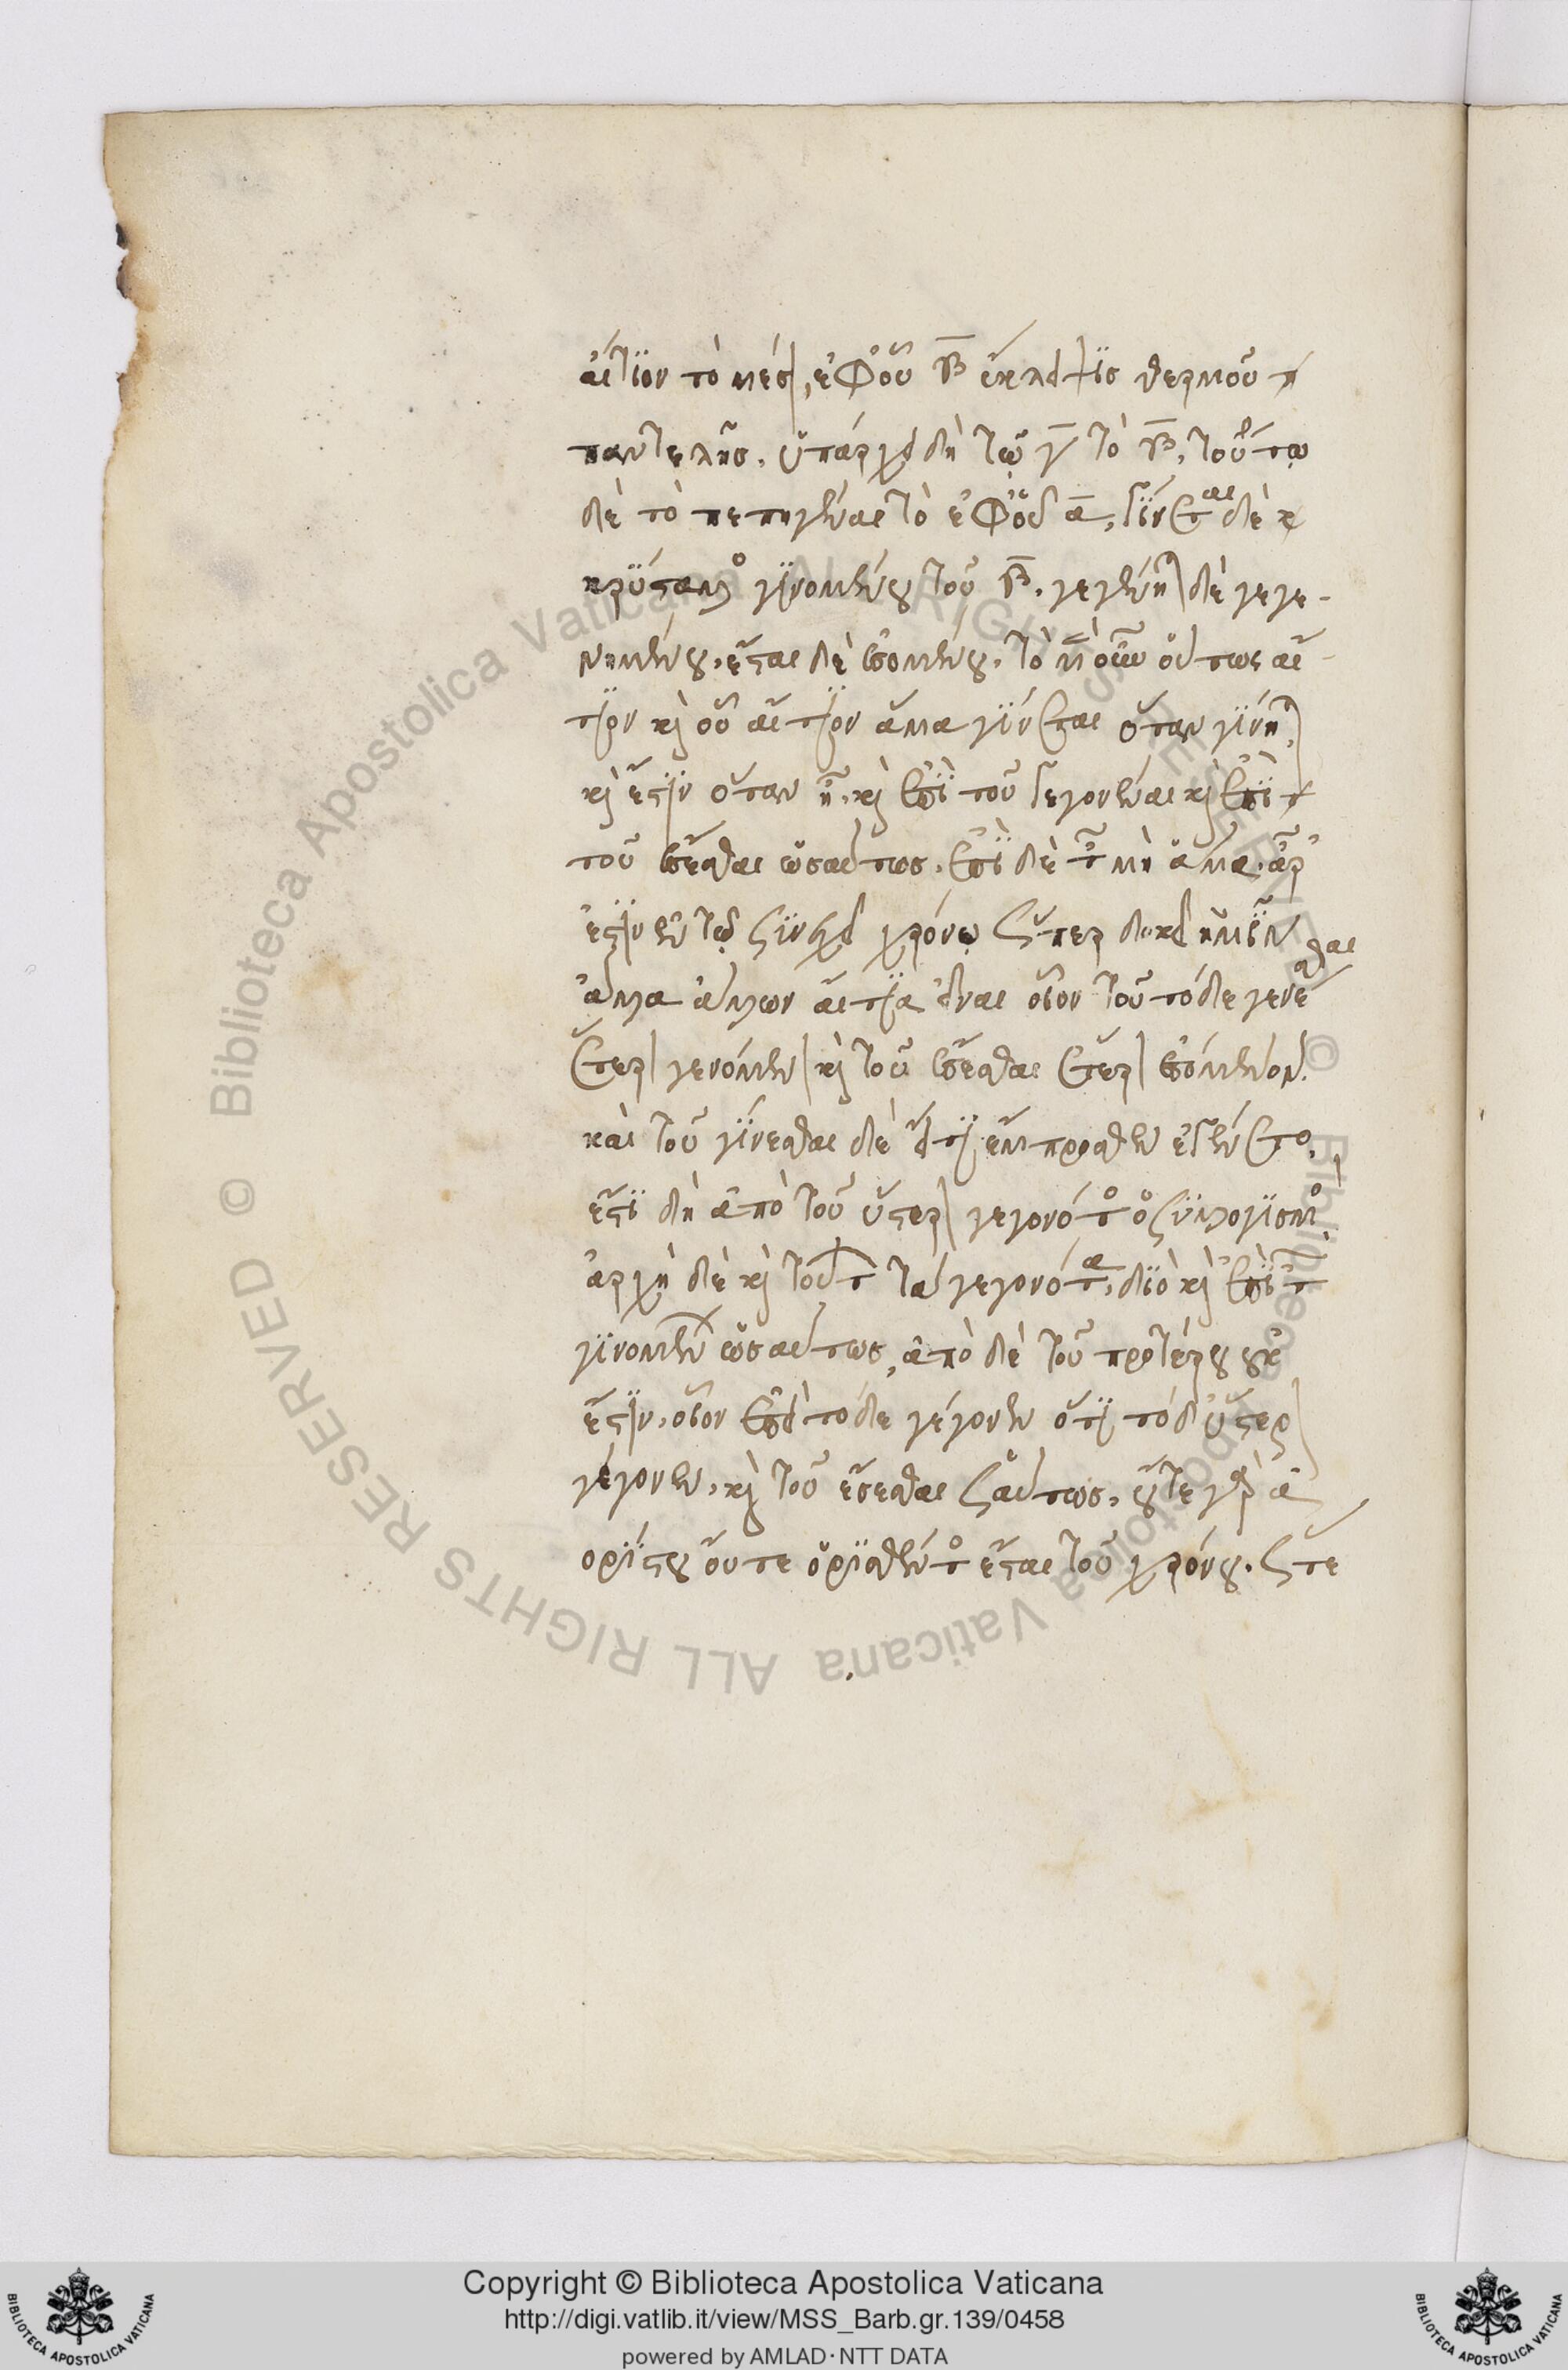 αἴτϊον τὸ μέσον, ἐφ' οὗ β̅ ἔκλειψϊσ θερμοῦ ἡ
παντελῆσ. ὑπάρχει δὴ τῷ γ̅ τὸ β̅, τούτῳ
δὲ τὸ πεπηγέναι τὸ ἐφ' οὗ α̅, γίνεται δὲ κ
κρύσταλλος γϊνομένου τοῦ β̅. γεγένηται δὲ γεγε-
νημένου. ἔσται δὲ ἐσομένου. τὸ μὲν οὖν οὕτως αἴ-
τϊον καὶ οὗ αἴτϊον ἅμα γίνεται ὅταν γίνηται,
καὶ ἔστϊν ὅταν ᾖ. καὶ ἐπὶ τοῦ γεγονέναι καὶ ἐπὶ τ
τοῦ ἔσεσθαι ὡσαύτωσ. ἐπὶ δὲ τῶν μὴ ἅμα. ἆρ'
ἐστϊν ἐν τῷ συνεχεῖ χρόνῳ ὥσπερ δοκεῖ ἡμῖν
ἄλλα ἄλλων αἴτϊα εἶναι οἷον τοῦ τόδε γενέσθαι
ἕτερον γενόμενον καὶ τοῦ ἔσεσθαι ἕτερον ἐσόμενον.
καὶ τοῦ γίνεσθαι δὲ εἴ τϊ ἔμπροσθεν ἐγένετο.
ἔστϊ δὴ ἀπὸ τοῦ ὕστερον γεγονότος ὁ συλλογϊσμός.
ἀρχὴ δὲ καὶ τούτων τὰ γεγονότα, δϊὸ καὶ ἐπὶ τῶν
γϊνομένων ὡσαύτωσ, ἀπὸ δὲ τοῦ προτέρου οὐκ
ἔστϊν. οἷον ἐπεὶ τόδε γέγονεν ὅτϊ τόδ' ὕστερον
γέγονεν. καὶ τοῦ ἔσεσθαι ὡσαύτωσ. οὔτε γὰρ ἀ
ορίστου οὔτε ὁρϊσθέντος ἔσται τοῦ χρόνου. ὥστε
Copyright © Biblioteca Apostolica Vaticana
http://digi.vatlib.it/view/MSS_Barb.gr.139/0458
powered by AMLAD·NTT DATA